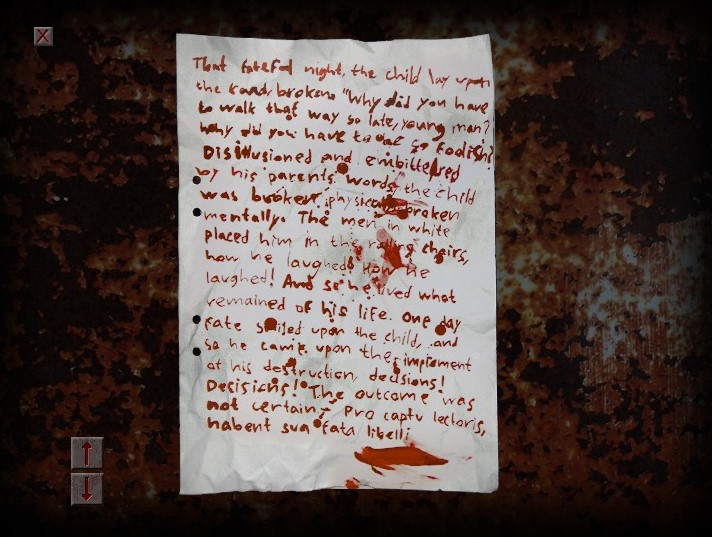 X
That fateful night, the child lay upon
the road, broken. "Why did you have
to walk that way so late, young man?
Why did you have to be so foolish?
Disillusioned and embittered
by his parents' words, the child
was broken, physically broken
mentally. The men in white
placed him in the rolling chairs,
how he laughed! How he
laughed! And so he lived what
remained of his life. One day
fate smiled upon the child, and
so he came upon the implement
of his destruction, decisions!
Decisions! The outcome was
not certain - pro captu lectoris,
habent sua fata libelli